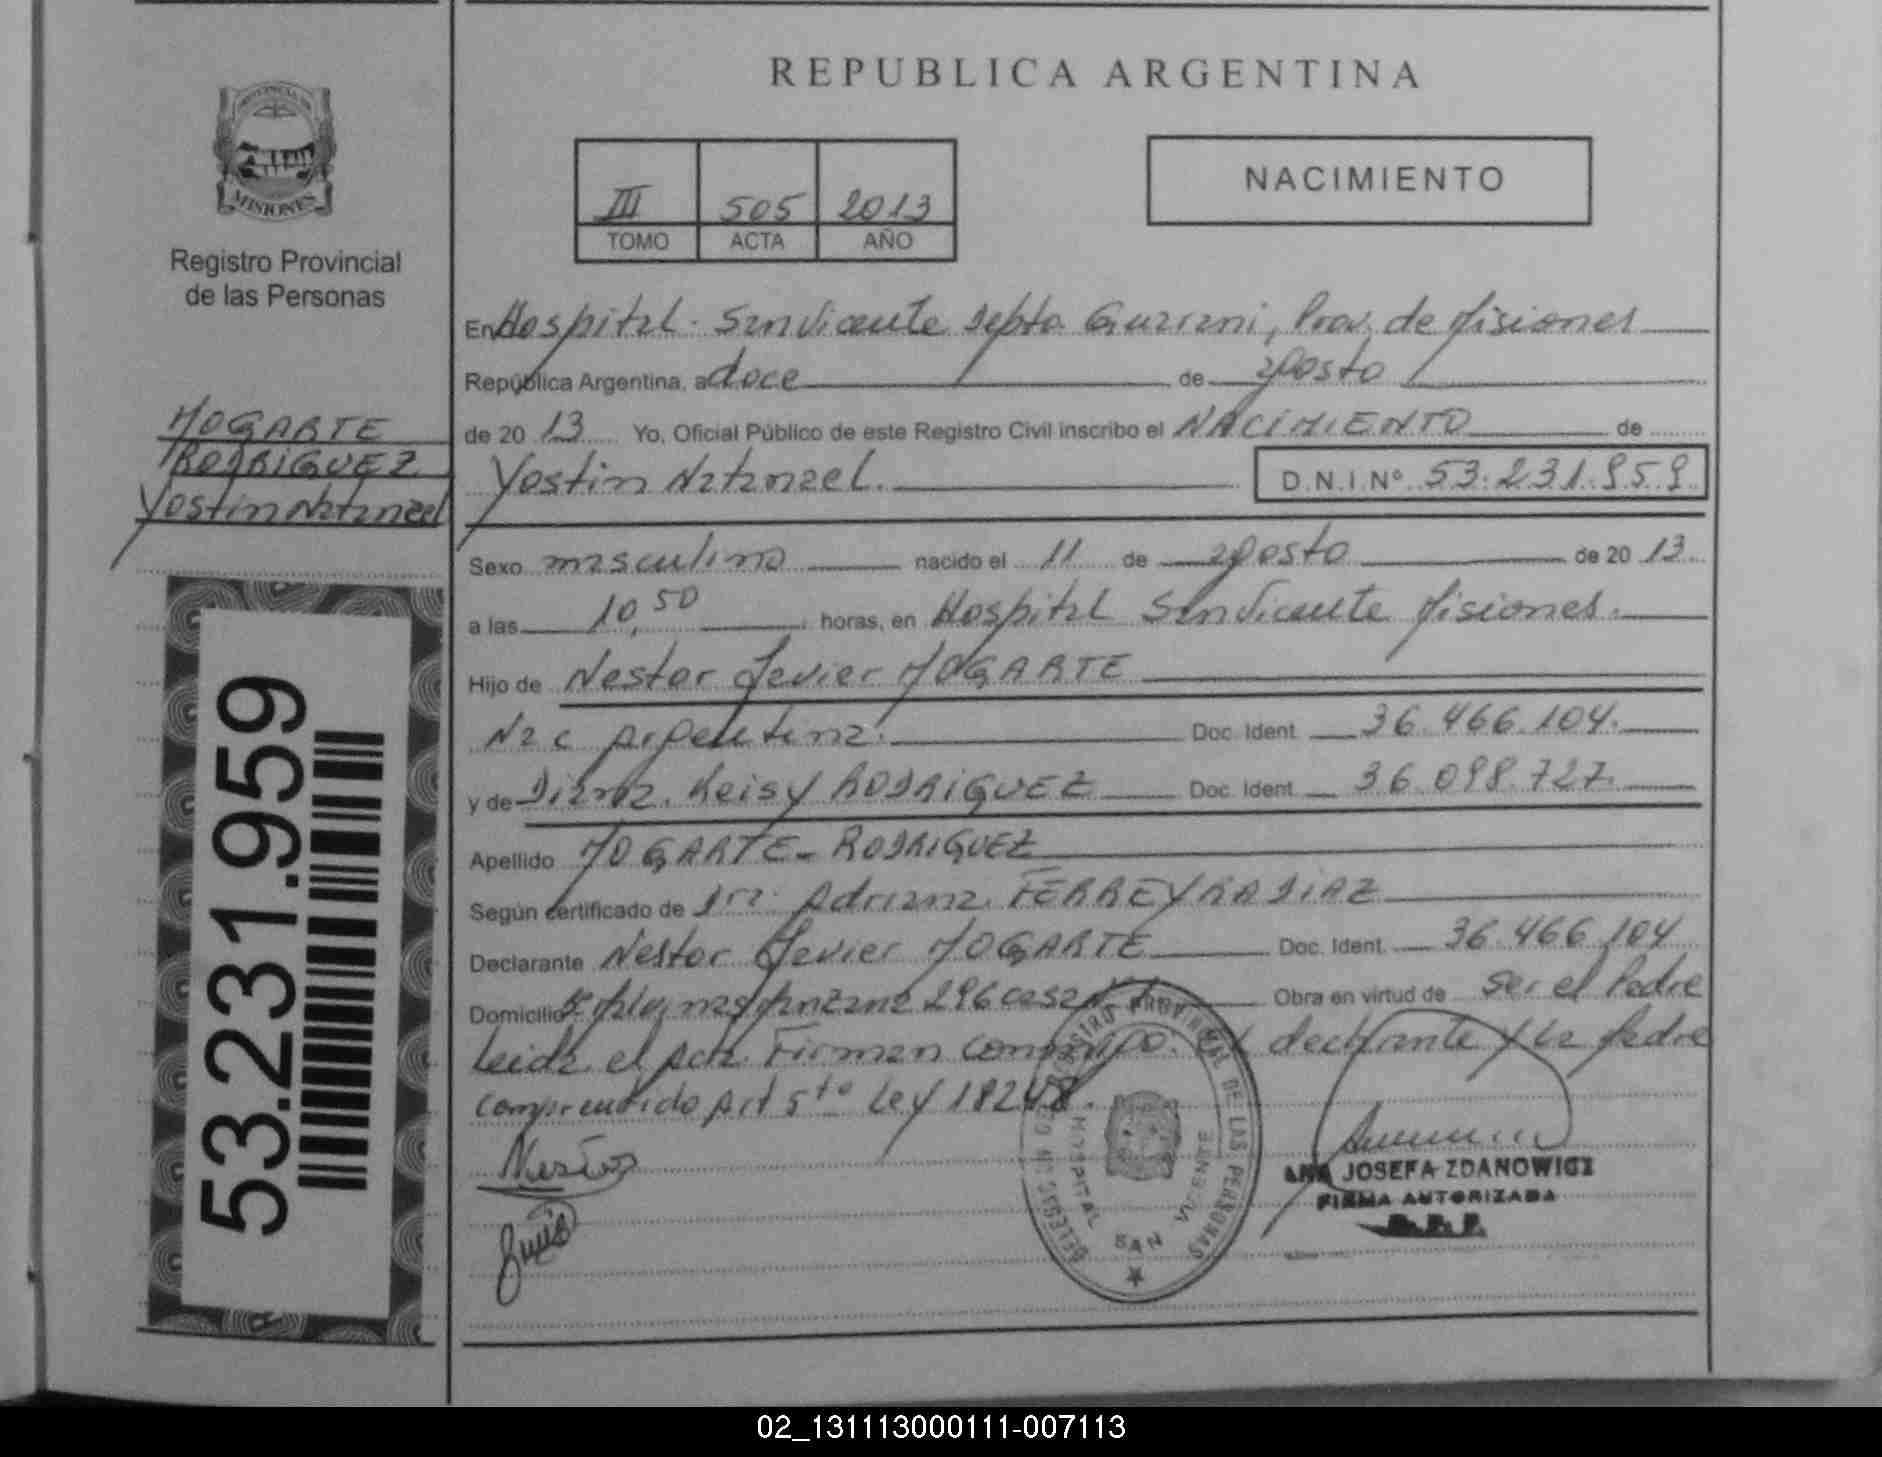 REPUBLICA ARGENTINA
PROVINCIA DE
MISIONES
Registro Provincial
de las Personas
III 505 2013
TOMO ACTA AÑO
NACIMIENTO
En Hospital San Vicente Depto Guarani, Prov. de Misiones
República Argentina, a doce de agosto
de 20 13 Yo, Oficial Público de este Registro Civil inscribo el NACIMIENTO de
Yostin Natanael. D.N.I.Nº 53.231.959
MOGARTE
RODRIGUEZ
Yostin Natanael
Sexo masculino nacido el 11 de agosto de 20 13
a las 10,50 horas, en Hospital San Vicente Misiones.
Hijo de Nestor Javier MOGARTE
Nac Argentina. Doc. Ident. 36.466.104.
y de Diana Keisy RODRIGUEZ Doc. Ident. 36.098.727.
Apellido MOGARTE - RODRIGUEZ
Según certificado de Dra. Adriana FERREYRA DIAZ
Declarante Nestor Javier MOGARTE Doc. Ident. 36.466.104
Domicilio Manzana 296 casa Obra en virtud de ser el Padre
Leida el Acta Firman conmigo. El declarante y la Madre
comprendido Art 5to Ley 18248.
53.231.959
REGISTRO PROVINCIAL DE LAS PERSONAS
HOSPITAL SAN VICENTE
Nestor
ANA JOSEFA ZDANOWICZ
FIRMA AUTORIZADA
R.P.P.
02_131113000111-007113